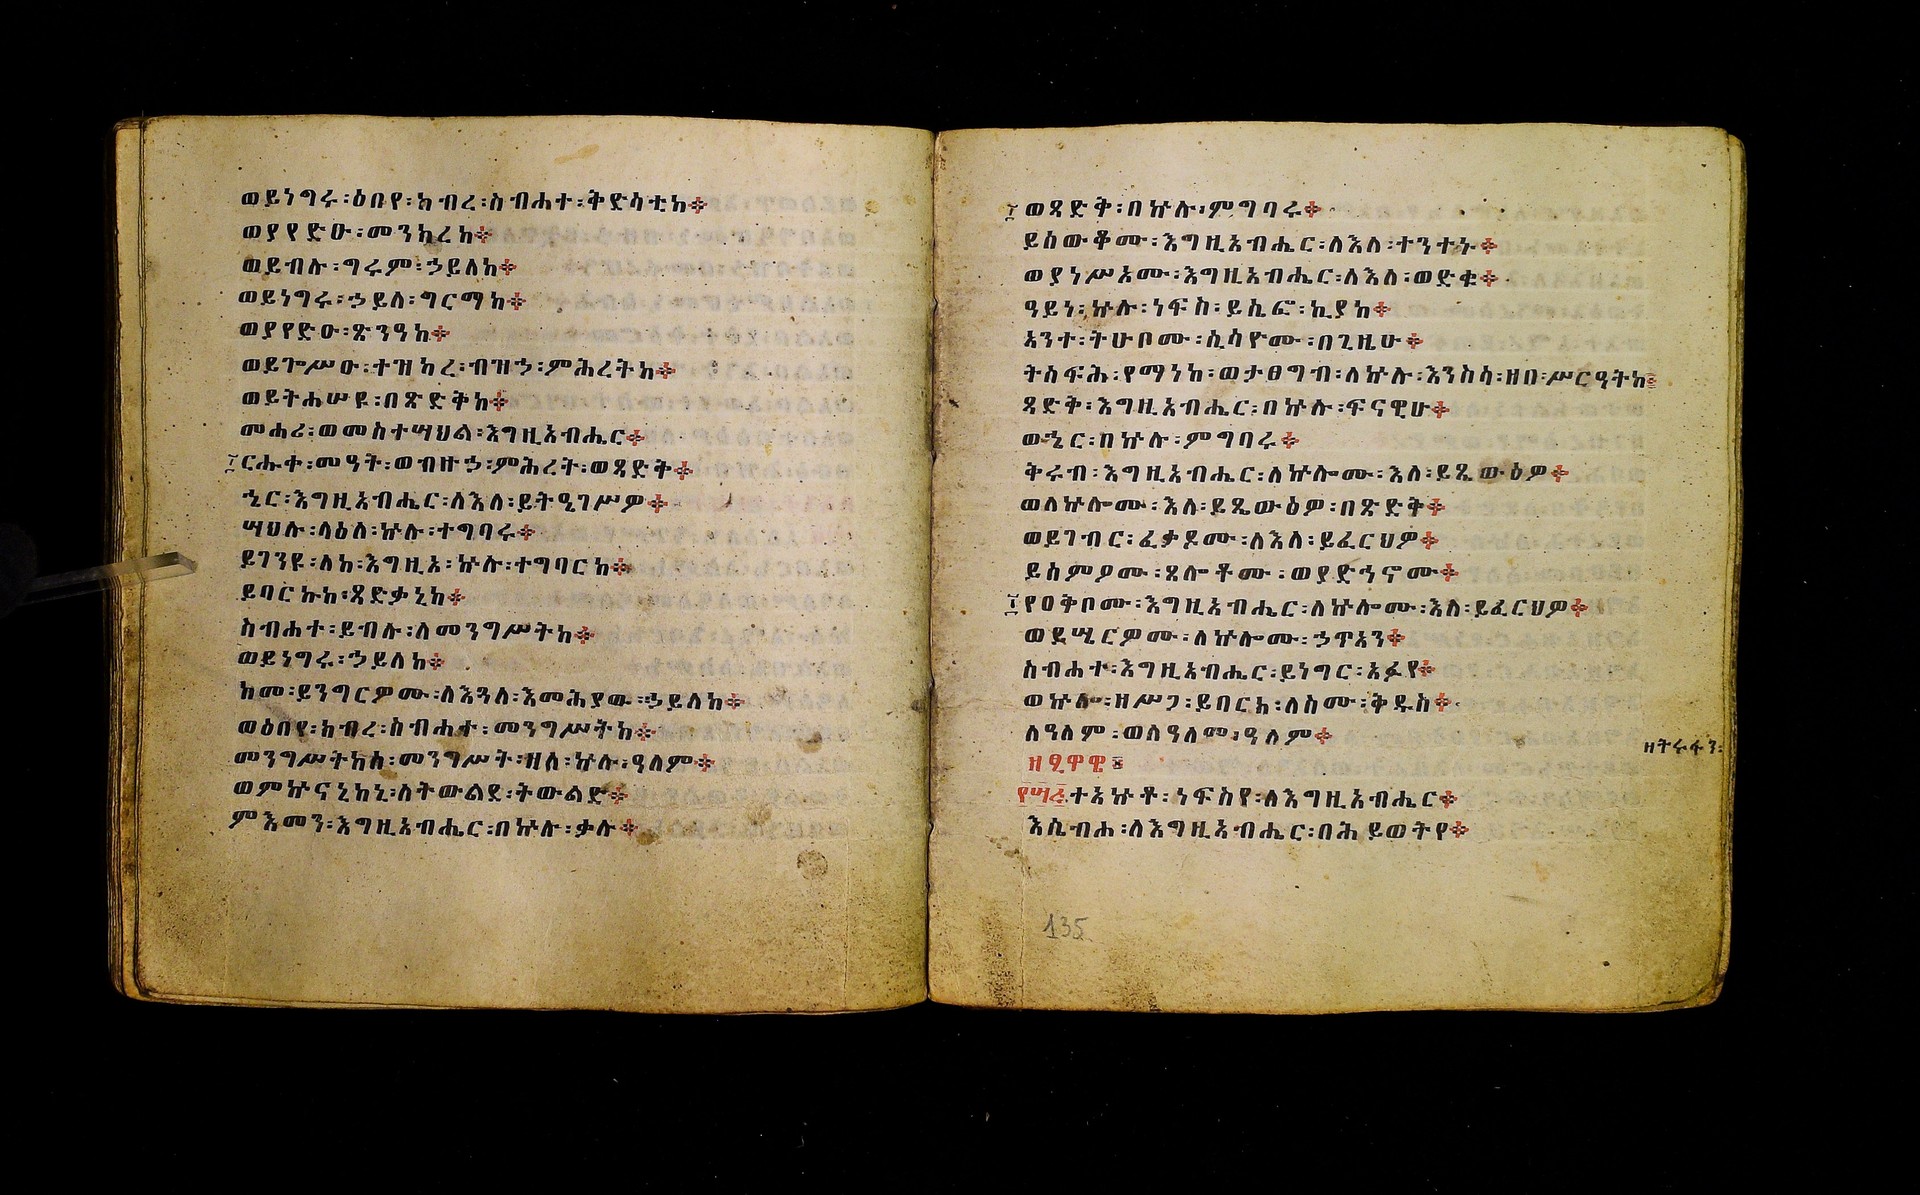 ወይነግሩ፡ዕበየ፡ክብረ፡ስብሐተ፡ቅድሳቲከ፨
ወያየድዑ፡መንክረከ፨
ወይብሉ፡ግሩም፡ኃይለከ፨
ወይነግሩ፡ኃይለ፡ግርማከ፨
ወያየድዑ፡ጽንዓከ፨
ወይጐሥዑ፡ተዝካረ፡ብዝኃ፡ምሕረትከ፨
ወይትሐሠዩ፡በጽድቅከ፨
መሐሪ፡ወመስተሣህል፡እግዚአብሔር፨
ርሑቀ፡መዓት፡ወብዙኃ፡ምሕረት፡ወጻድቅ፨
ኄር፡እግዚአብሔር፡ለእለ፡ይትዔገሥዎ፨
ሣህሉ፡ላዕለ፡ኵሉ፡ተግባሩ፨
ይገንዩ፡ለከ፡እግዚአ፡ኵሉ፡ተግባርከ፨
ይባርኩከ፡ጻድቃኒከ፨
ስብሐተ፡ይብሉ፡ለመንግሥትከ፨
ወይነግሩ፡ኃይለከ፨
ከመ፡ይንግርዎሙ፡ለእጓለ፡እመሕያው፡ኃይለከ፨
ወዕበየ፡ክብረ፡ስብሐተ፡መንግሥትከ፨
መንግሥትከሰ፡መንግሥት፡ዘለ፡ኵሉ፡ዓለም፨
ወምኵናኒከኒ፡ለትውልደ፡ትውልድ፨
ምእመን፡እግዚአብሔር፡በኵሉ፡ቃሉ፨
ወጻድቅ፡በኵሉ፡ምግባሩ፨
ይሰውቆሙ፡እግዚአብሔር፡ለእለ፡ተንተኑ፨
ወያነሥኦሙ፡እግዚአብሔር፡ለእለ፡ወድቁ፨
ዓይነ፡ኵሉ፡ነፍስ፡ይሴፎ፡ኪያከ፨
አንተ፡ትሁቦሙ፡ሲሳዮሙ፡በጊዜሁ፨
ትሰፍሕ፡የማነከ፡ወታፀግብ፡ለኵሉ፡እንስሳ፡ዘበ፡ሥርዓትከ፨
ጻድቅ፡እግዚአብሔር፡በኵሉ፡ፍናዊሁ፨
ወኄር፡በኵሉ፡ምግባሩ፨
ቅሩብ፡እግዚአብሔር፡ለኵሎሙ፡እለ፡ይጼውዕዎ፨
ወለኵሎሙ፡እለ፡ይጼውዕዎ፡በጽድቅ፨
ወይገብር፡ፈቃዶሙ፡ለእለ፡ይፈርህዎ፨
ይሰምዖሙ፡ጸሎቶሙ፡ወያድኅኖሙ፨
የዐቅቦሙ፡እግዚአብሔር፡ለኵሎሙ፡እለ፡ይፈርህዎ፨
ወይሤርዎሙ፡ለኵሎሙ፡ኃጥአን፨
ስብሐተ፡እግዚአብሔር፡ይነግር፡አፉየ፨
ወኵሉ፡ዘሥጋ፡ይባርክ፡ለስሙ፡ቅዱስ፨
ለዓለም፡ወለዓለመ፡ዓለም፨
ዘትሩፋን፡
ተአኵቶ፡ነፍስየ፡ለእግዚአብሔር፨
እሴብሐ፡ለእግዚአብሔር፡በሕይወትየ፨
135